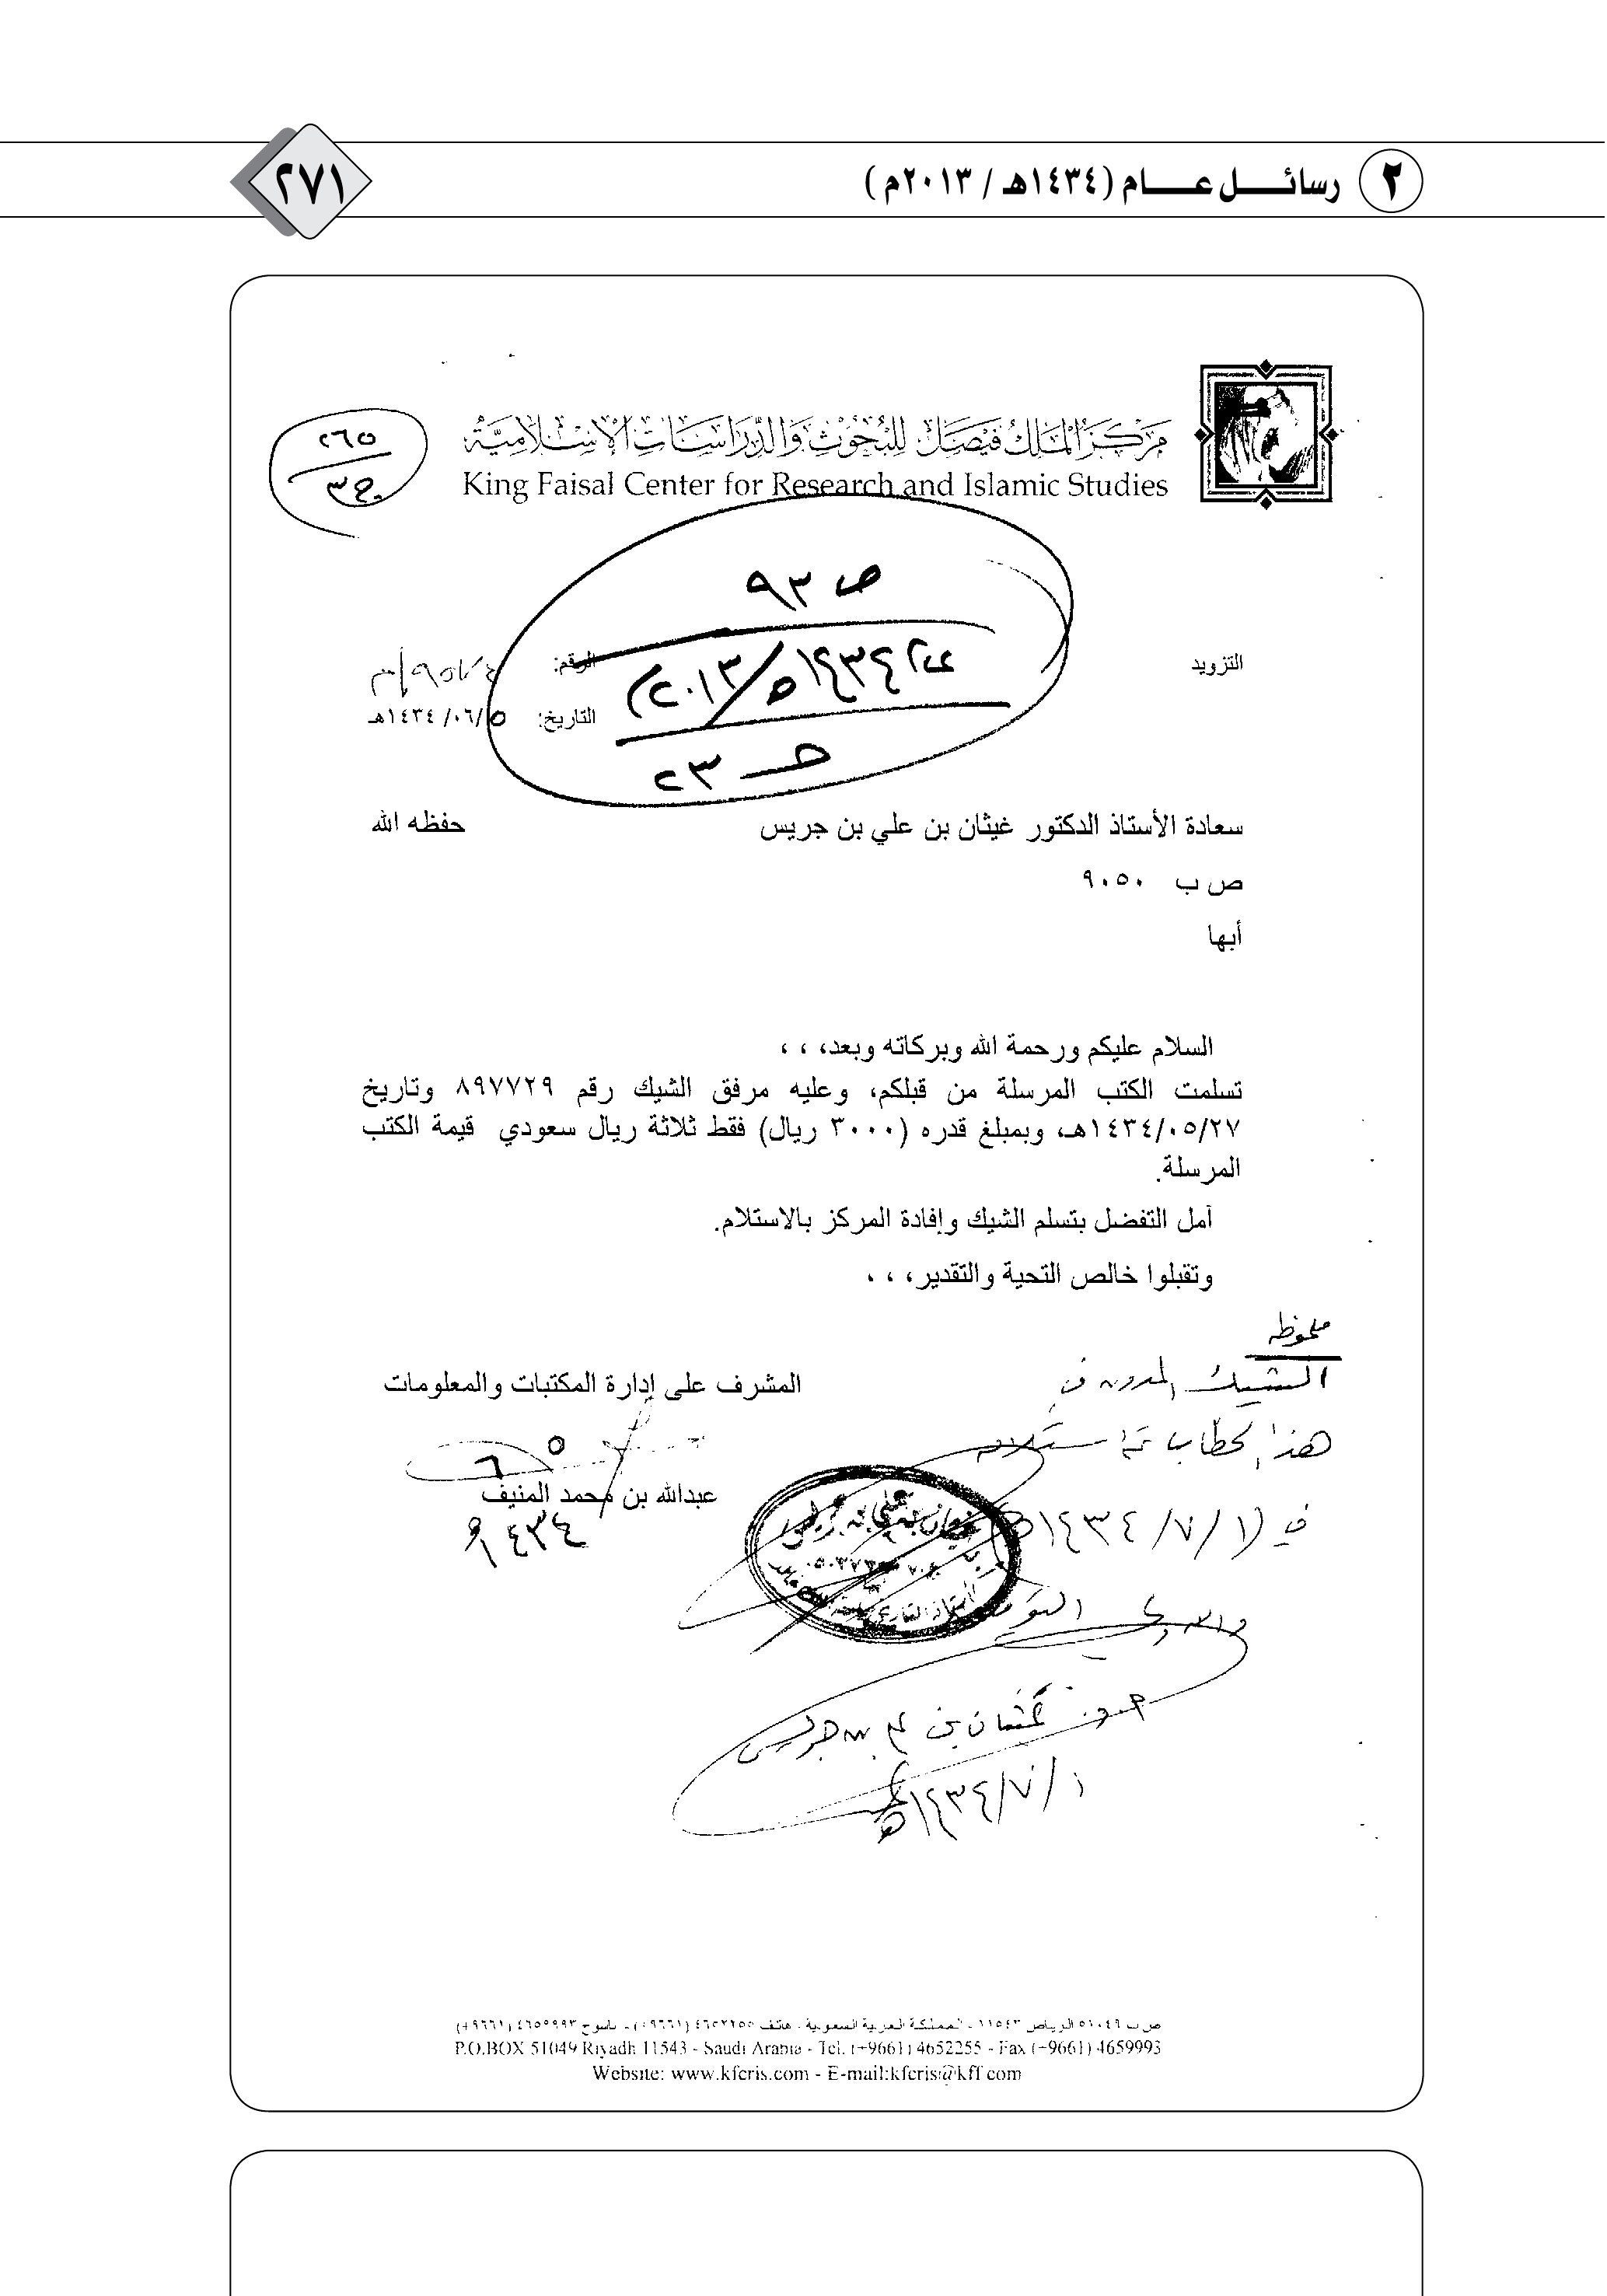 ٢ رسائل عام (١٤٣٤هـ / ٢٠١٣م)
٢٧١
مركز الملك فيصل للبحوث والدراسات الإسلامية
King Faisal Center for Research and Islamic Studies
٢٦٥
ج٣
ص ٩٣
١٤٣٤هـ / ٢٠١٣م
ج ٢٣
التزويد
الرقم:
التاريخ: ٥/٠٦/١٤٣٤هـ
سعادة الأستاذ الدكتور غيثان بن علي بن جريس حفظه الله
ص ب ٩٠٥٠
أبها
السلام عليكم ورحمة الله وبركاته وبعد، ، ،
تسلمت الكتب المرسلة من قبلكم، وعليه مرفق الشيك رقم ٨٩٧٧٢٩ وتاريخ
١٤٣٤/٠٥/٢٧هـ، وبمبلغ قدره (٣٠٠٠ ريال) فقط ثلاثة ريال سعودي قيمة الكتب
المرسلة.
آمل التفضل بتسلم الشيك وإفادة المركز بالاستلام.
وتقبلوا خالص التحية والتقدير، ، ،
ملحوظه
الشيك المدون في
هذا الخطاب تم استلامه
في (١/٧/١٤٣٤هـ)
والله ولي التوفيق
غيثان بن علي بن جريس
١/٧/١٤٣٤هـ
المشرف على إدارة المكتبات والمعلومات
٥
٦
عبدالله بن محمد المنيف
١٤٣٤هـ
ص ب ٥١٠٤٩ الرياض ١١٥٤٣ - المملكة العربية السعودية - هاتف ٤٦٥٢٢٥٥ (٩٦٦١+) - ناسوخ ٤٦٥٩٩٩٣ (٩٦٦١+)
P.O.BOX 51049 Riyadh 11543 - Saudi Arabia - Tel. (+9661) 4652255 - Fax (+9661) 4659993
Website: www.kfcris.com - E-mail:kfcris@kff.com